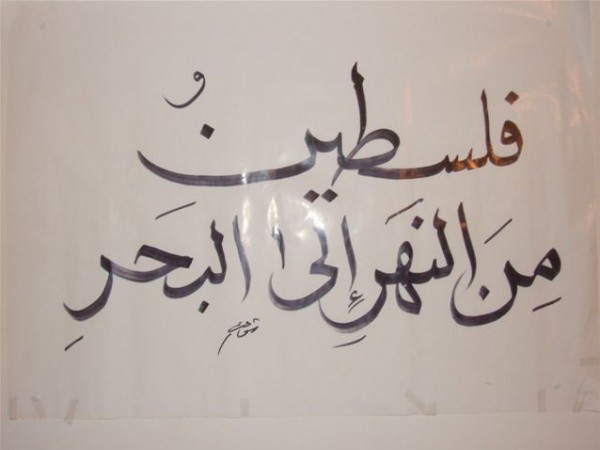 فلسطينُ
مِنَ النهَرِ إلى البحَرِ